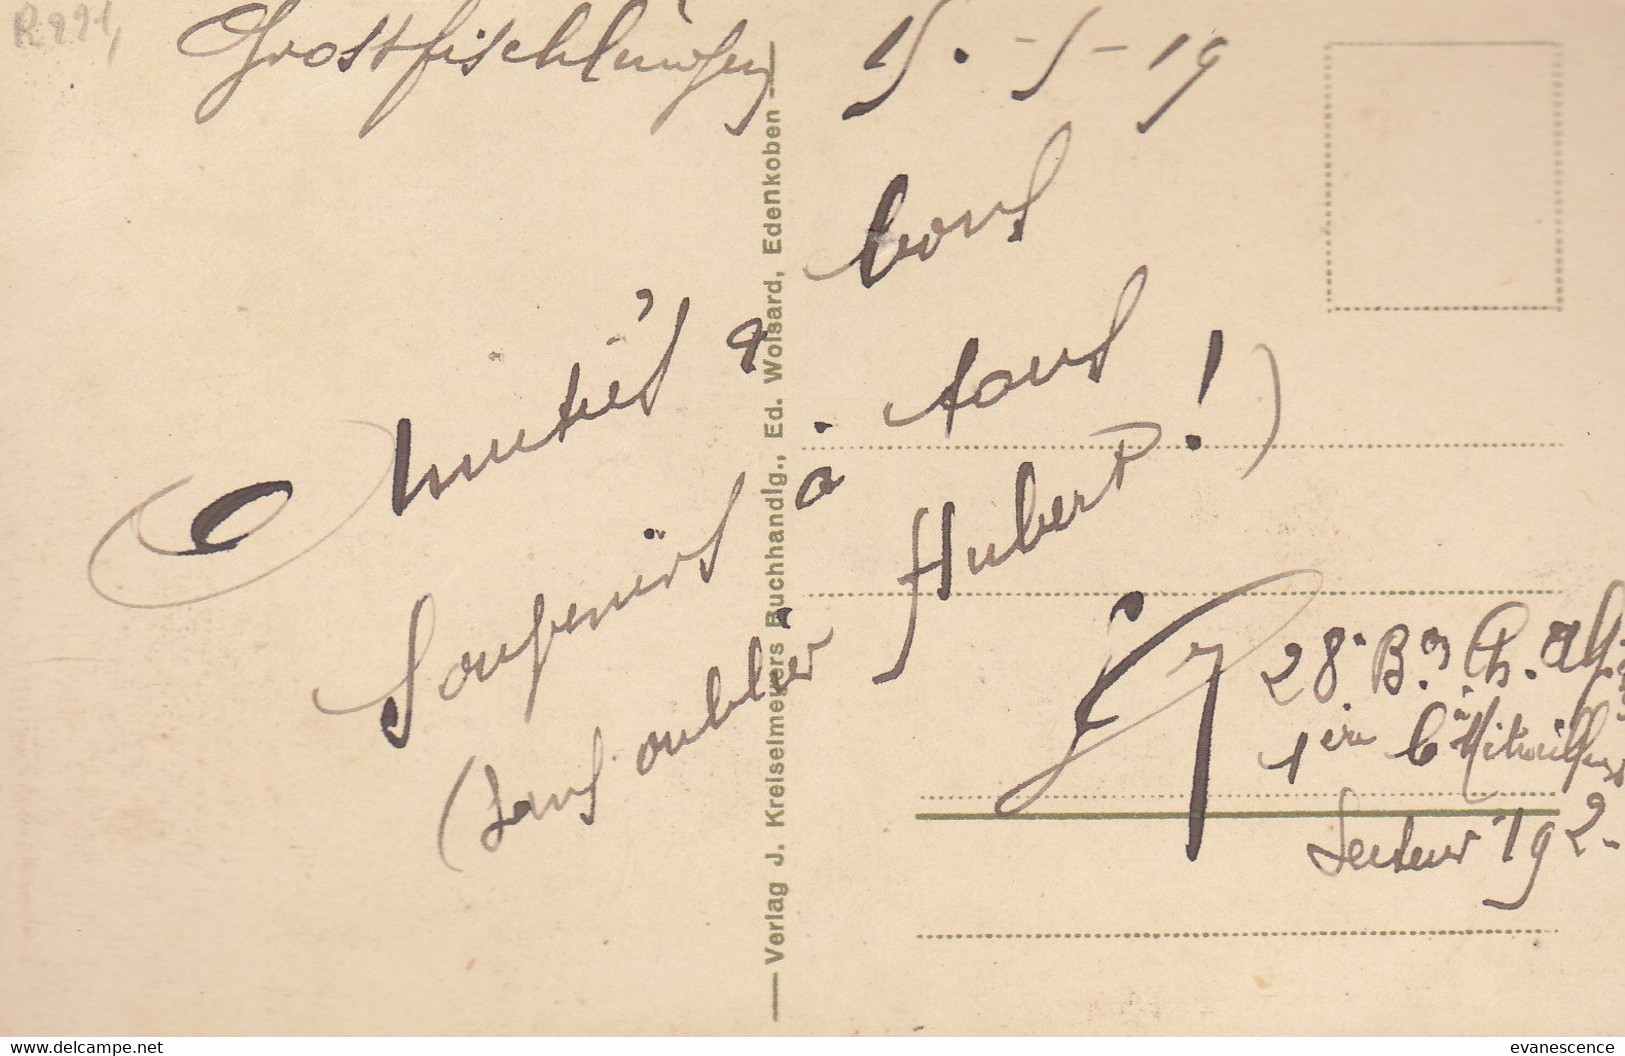 R 221,
Grossfischlingen 15 - 5 - 19
Amitiés & bons
Souvenirs à tous
(sans oublier Hubert !)
28e Bon Ch. Alp.
1ère Cie Mitrailleuses
Secteur 192.
Verlag J. Kreiselmeyers Buchhandlg., Ed. Wolsard, Edenkoben
www.delcampe.net
evanescence